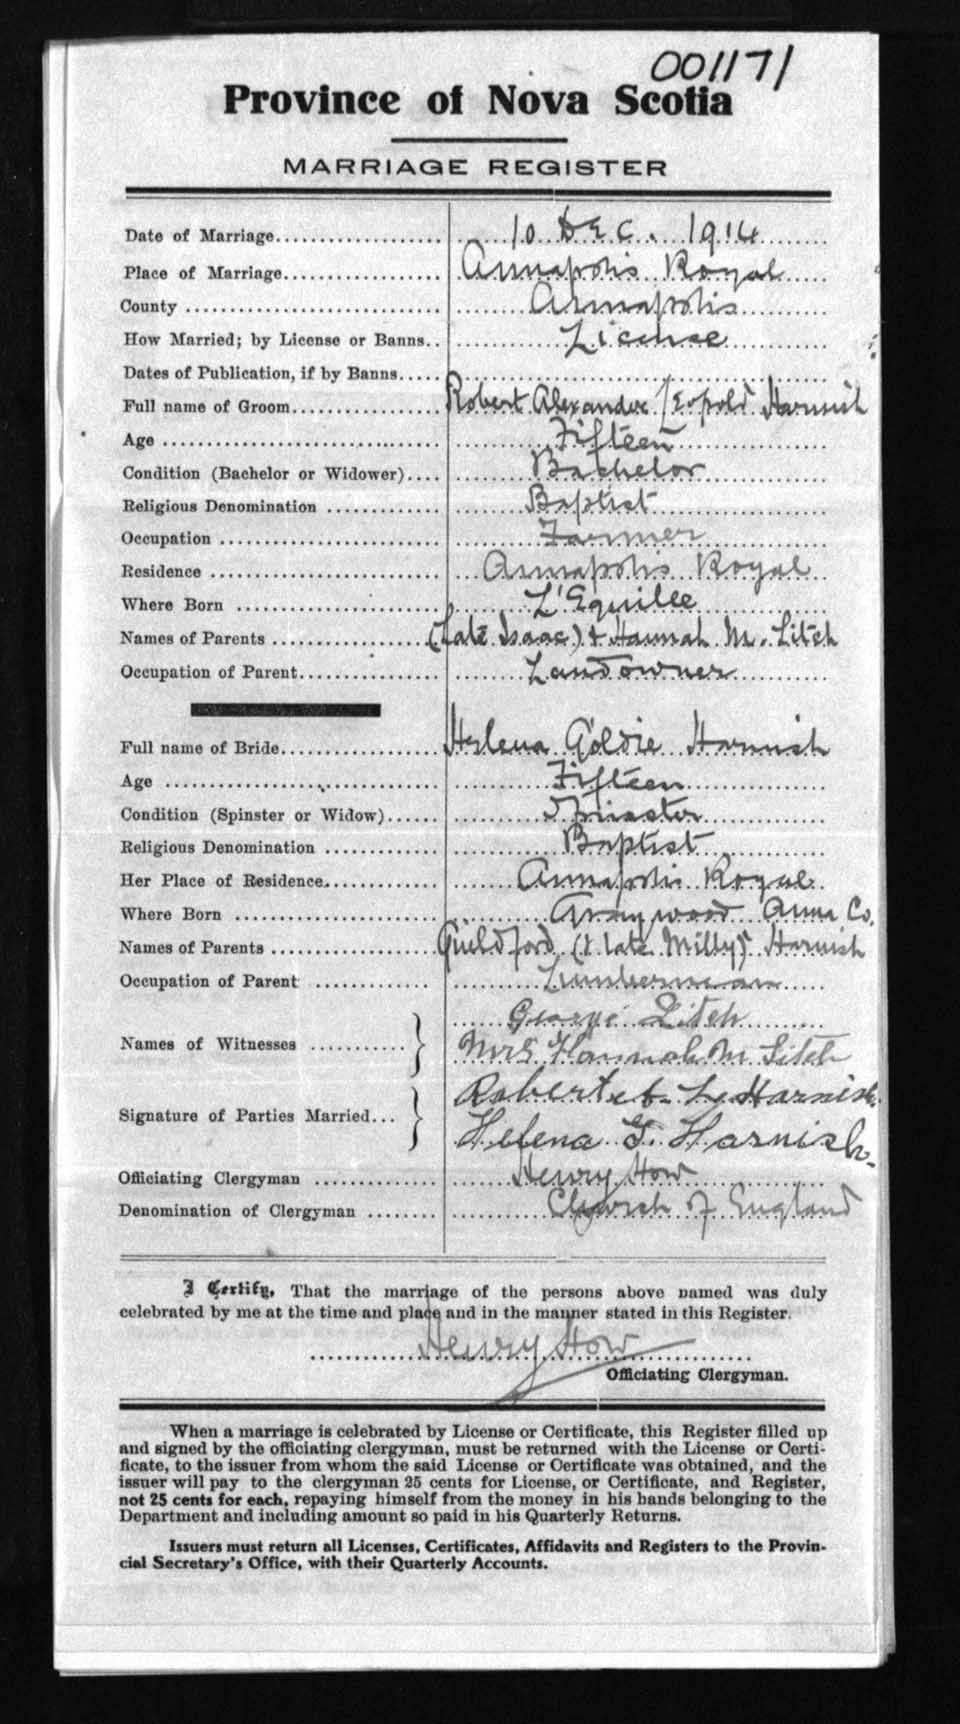 001171
Province of Nova Scotia
MARRIAGE REGISTER
Date of Marriage 10 DEC. 1914
Place of Marriage Annapolis Royal
County Annapolis
How Married; by License or Banns License
Dates of Publication, if by Banns
Full name of Groom Robert Alexander Leopold Harnish
Age Fifteen
Condition (Bachelor or Widower) Bachelor
Religious Denomination Baptist
Occupation Farmer
Residence Annapolis Royal
Where Born L'Equille
Names of Parents (Late Isaac) & Hannah M. Litch
Occupation of Parent Landowner
Full name of Bride Helena Goldie Harnish
Age Fifteen
Condition (Spinster or Widow) Spinster
Religious Denomination Baptist
Her Place of Residence Annapolis Royal
Where Born Graywood Anna Co.
Names of Parents Guildford (& late Milly) Harnish
Occupation of Parent Lumberman
George Litch
Names of Witnesses
Mrs Hannah M Litch
Robert L. Harnish
Signature of Parties Married
Helena G. Harnish
Officiating Clergyman Henry How
Denomination of Clergyman Church of England
I Certify, That the marriage of the persons above named was duly
celebrated by me at the time and place and in the manner stated in this Register.
Henry How
Officiating Clergyman.
When a marriage is celebrated by License or Certificate, this Register filled up
and signed by the officiating clergyman, must be returned with the License or Certi-
ficate, to the issuer from whom the said License or Certificate was obtained, and the
issuer will pay to the clergyman 25 cents for License, or Certificate, and Register,
not 25 cents for each, repaying himself from the money in his hands belonging to the
Department and including amount so paid in his Quarterly Returns.
Issuers must return all Licenses, Certificates, Affidavits and Registers to the Provin-
cial Secretary's Office, with their Quarterly Accounts.